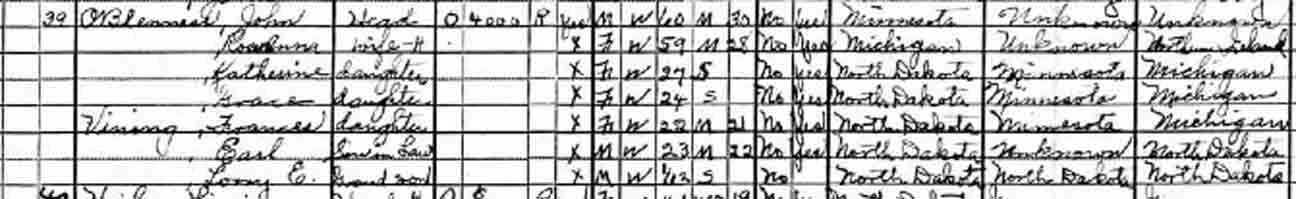 39 O'Blenness, John Head O 4000 R Yes M W 60 M 30 No Yes Minnesota Unknown Unknown
Roseanna Wife-H X F W 59 M 28 No Yes Michigan Unknown Northern Ireland
Katherine daughter X F W 27 S No Yes North Dakota Minnesota Michigan
Grace daughter X F W 24 S No Yes North Dakota Minnesota Michigan
Vining, Frances daughter X F W 22 M 21 No Yes North Dakota Minnesota Michigan
Earl Son in Law X M W 23 M 22 No Yes North Dakota Unknown North Dakota
E. Grand son X M W S No North Dakota North Dakota North Dakota